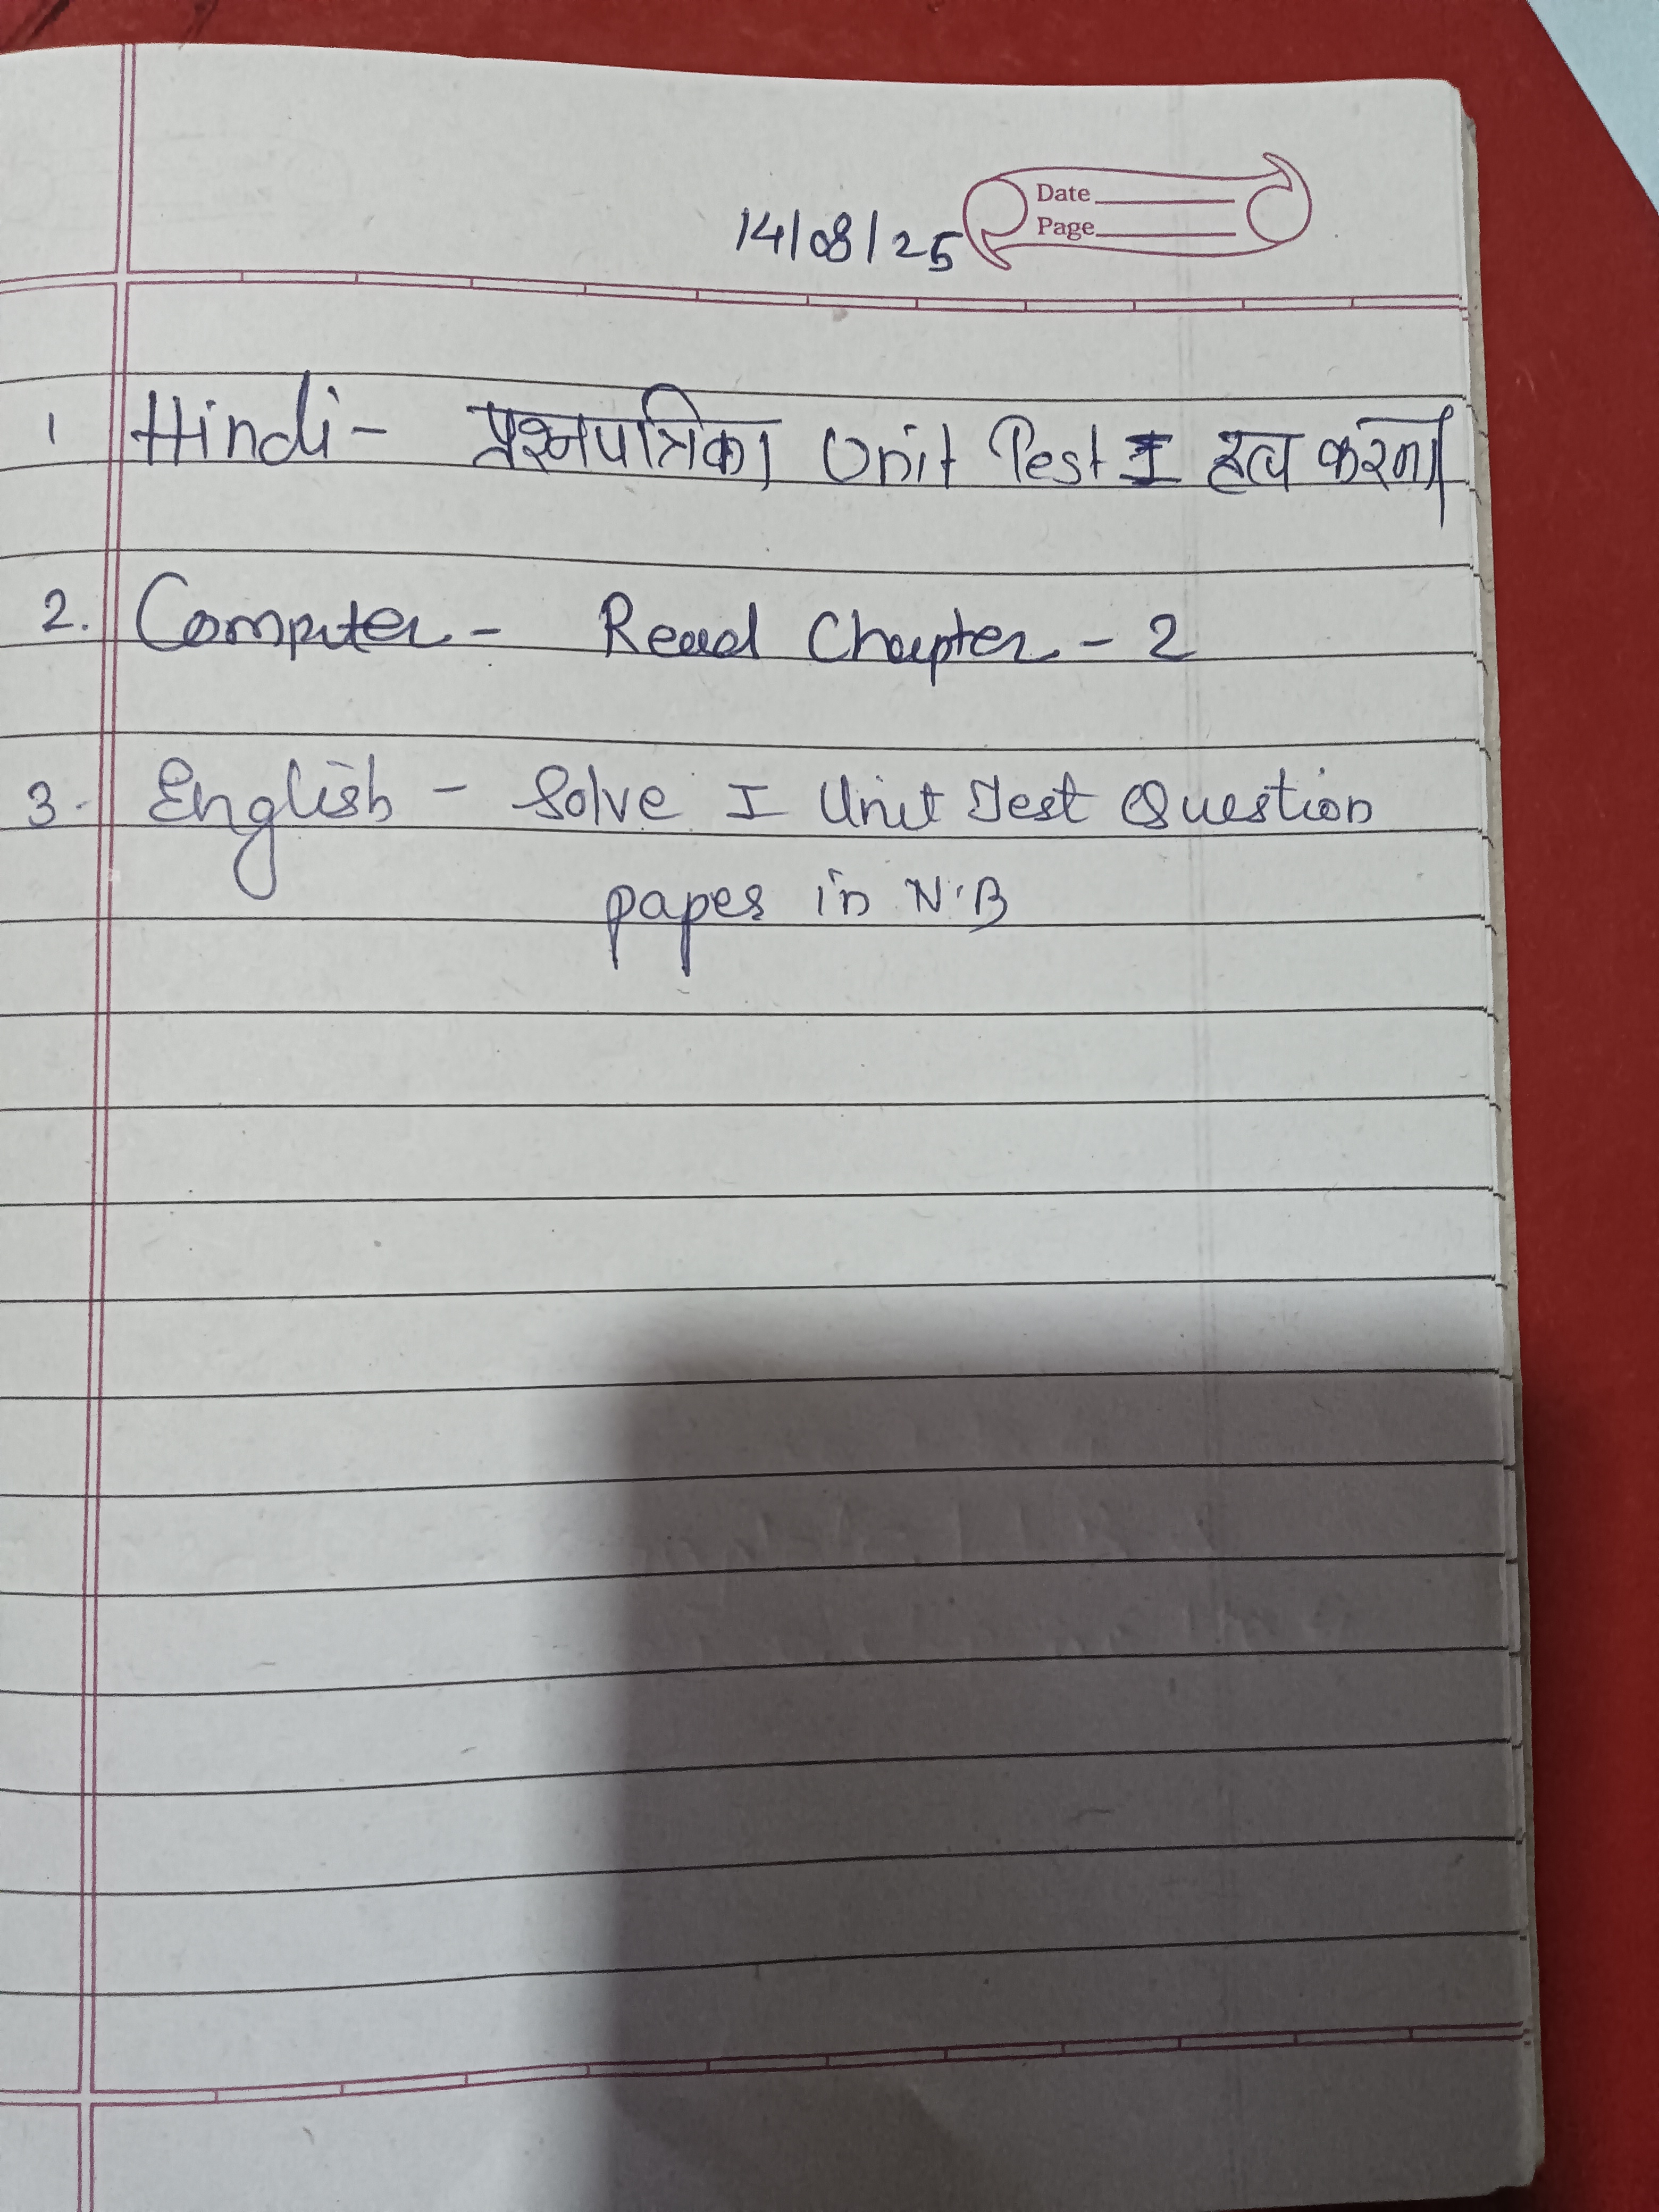 Date
Page
14/08/25
1 Hindi - प्रश्नपत्रिका Unit Test I हल करना।
2. Computer - Read Chapter - 2
3. English - Solve I Unit Test Question
paper in N.B